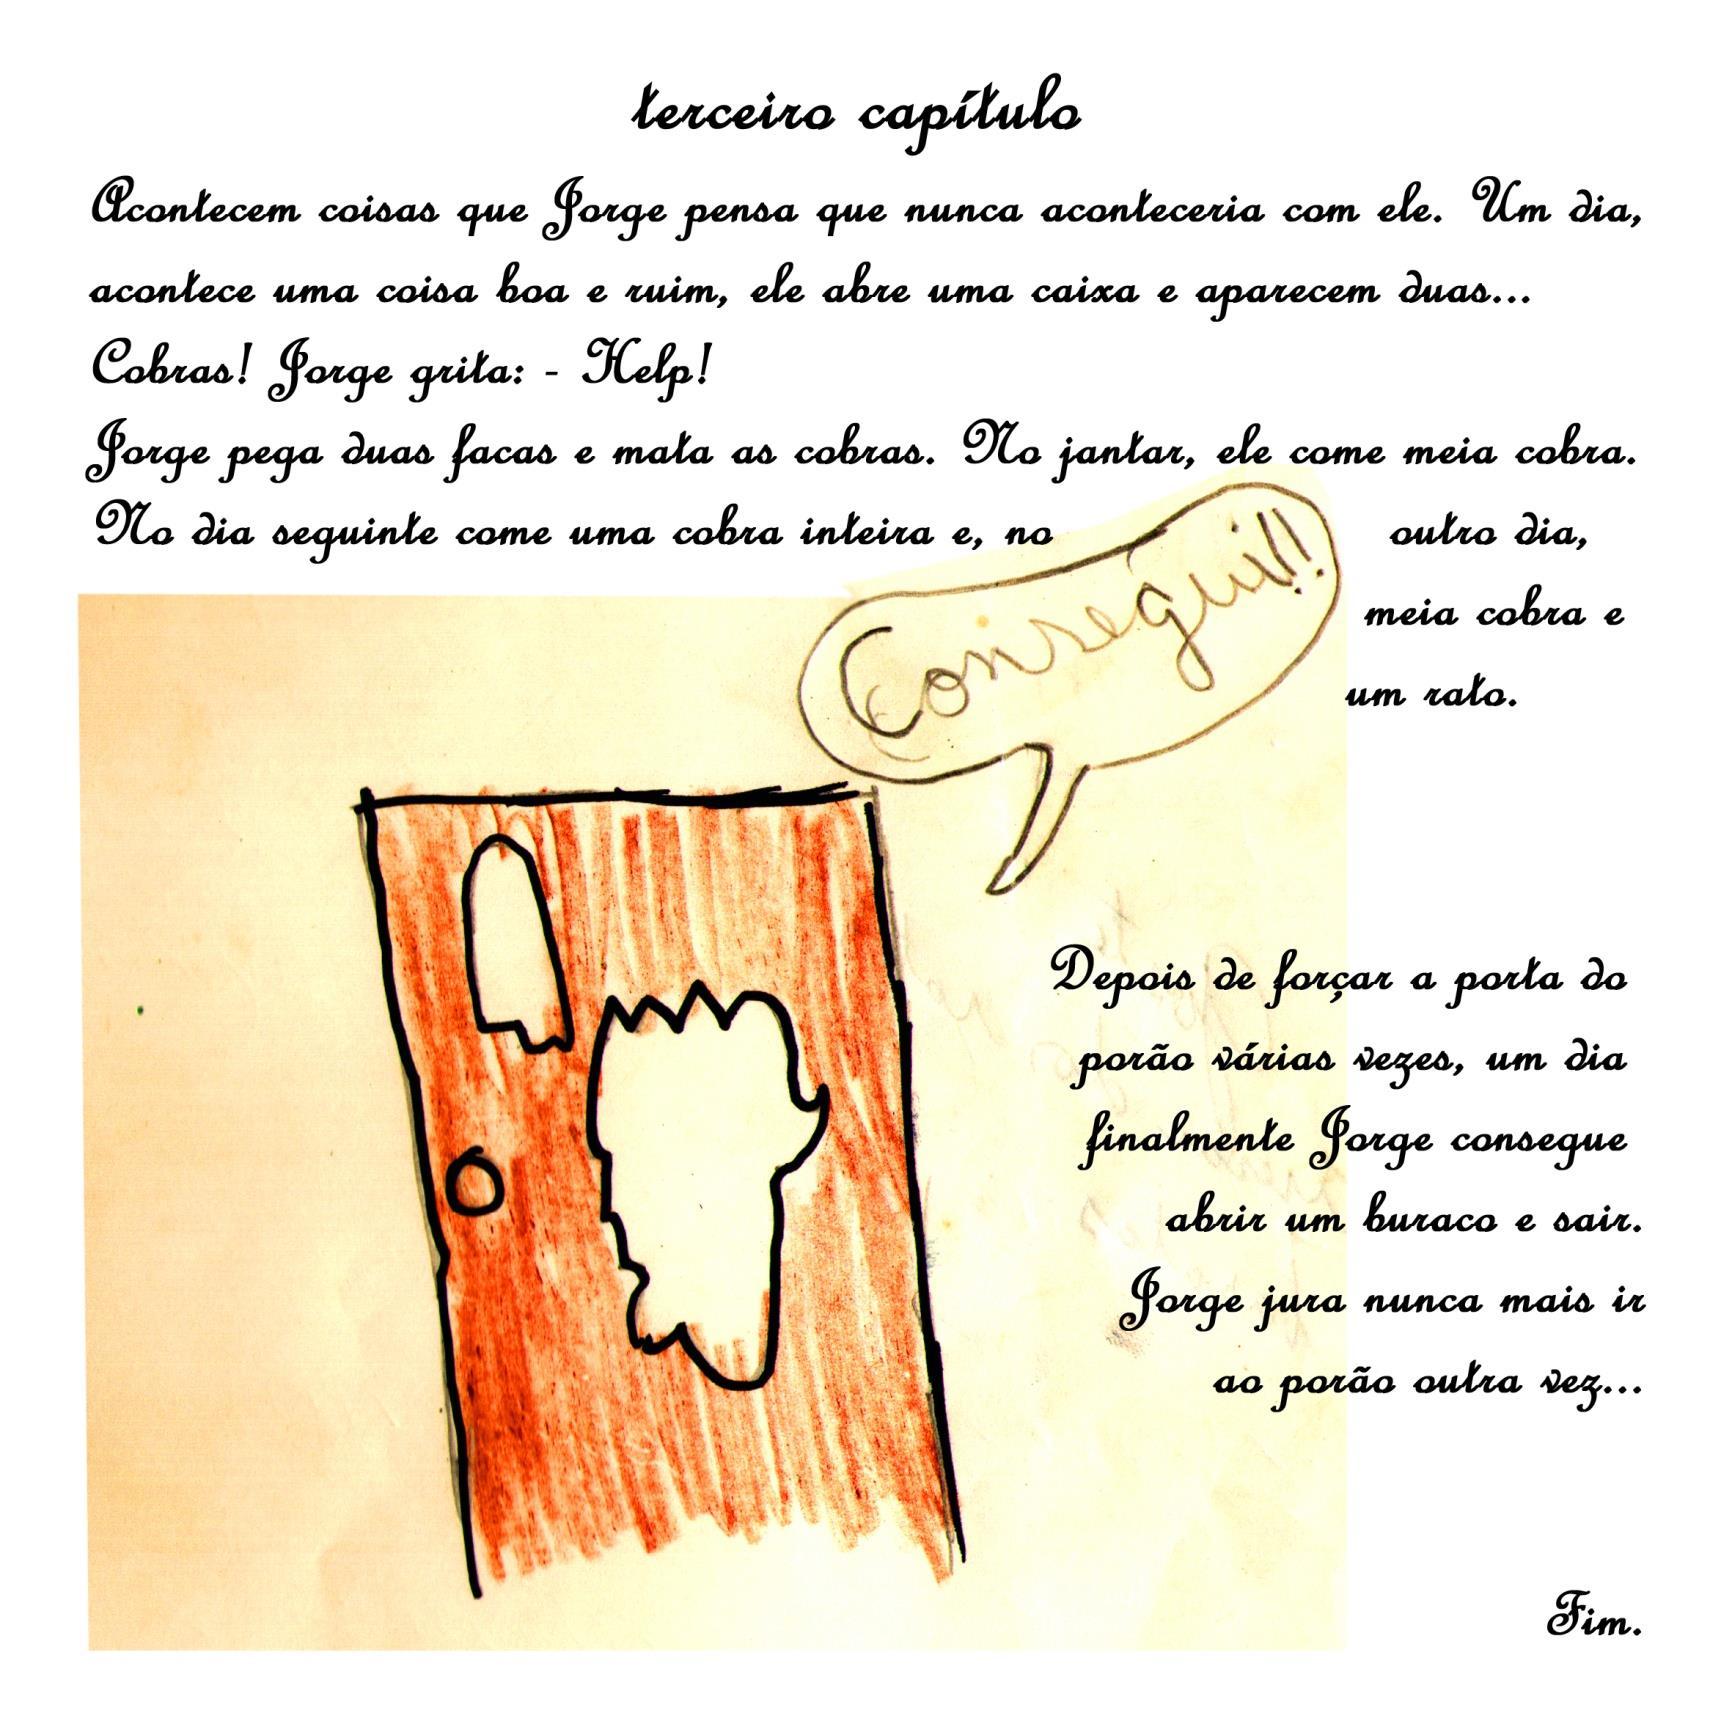 terceiro capítulo
Acontecem coisas que Jorge pensa que nunca aconteceria com ele. Um dia,
acontece uma coisa boa e ruim, ele abre uma caixa e aparecem duas...
Cobras! Jorge grita: - Help!
Jorge pega duas facas e mata as cobras. No jantar, ele come meia cobra.
No dia seguinte come uma cobra inteira e, no outro dia,
meia cobra e
um rato.
Consegui!!
Depois de forçar a porta do
porão várias vezes, um dia
finalmente Jorge consegue
abrir um buraco e sair.
Jorge jura nunca mais ir
ao porão outra vez...
Fim.